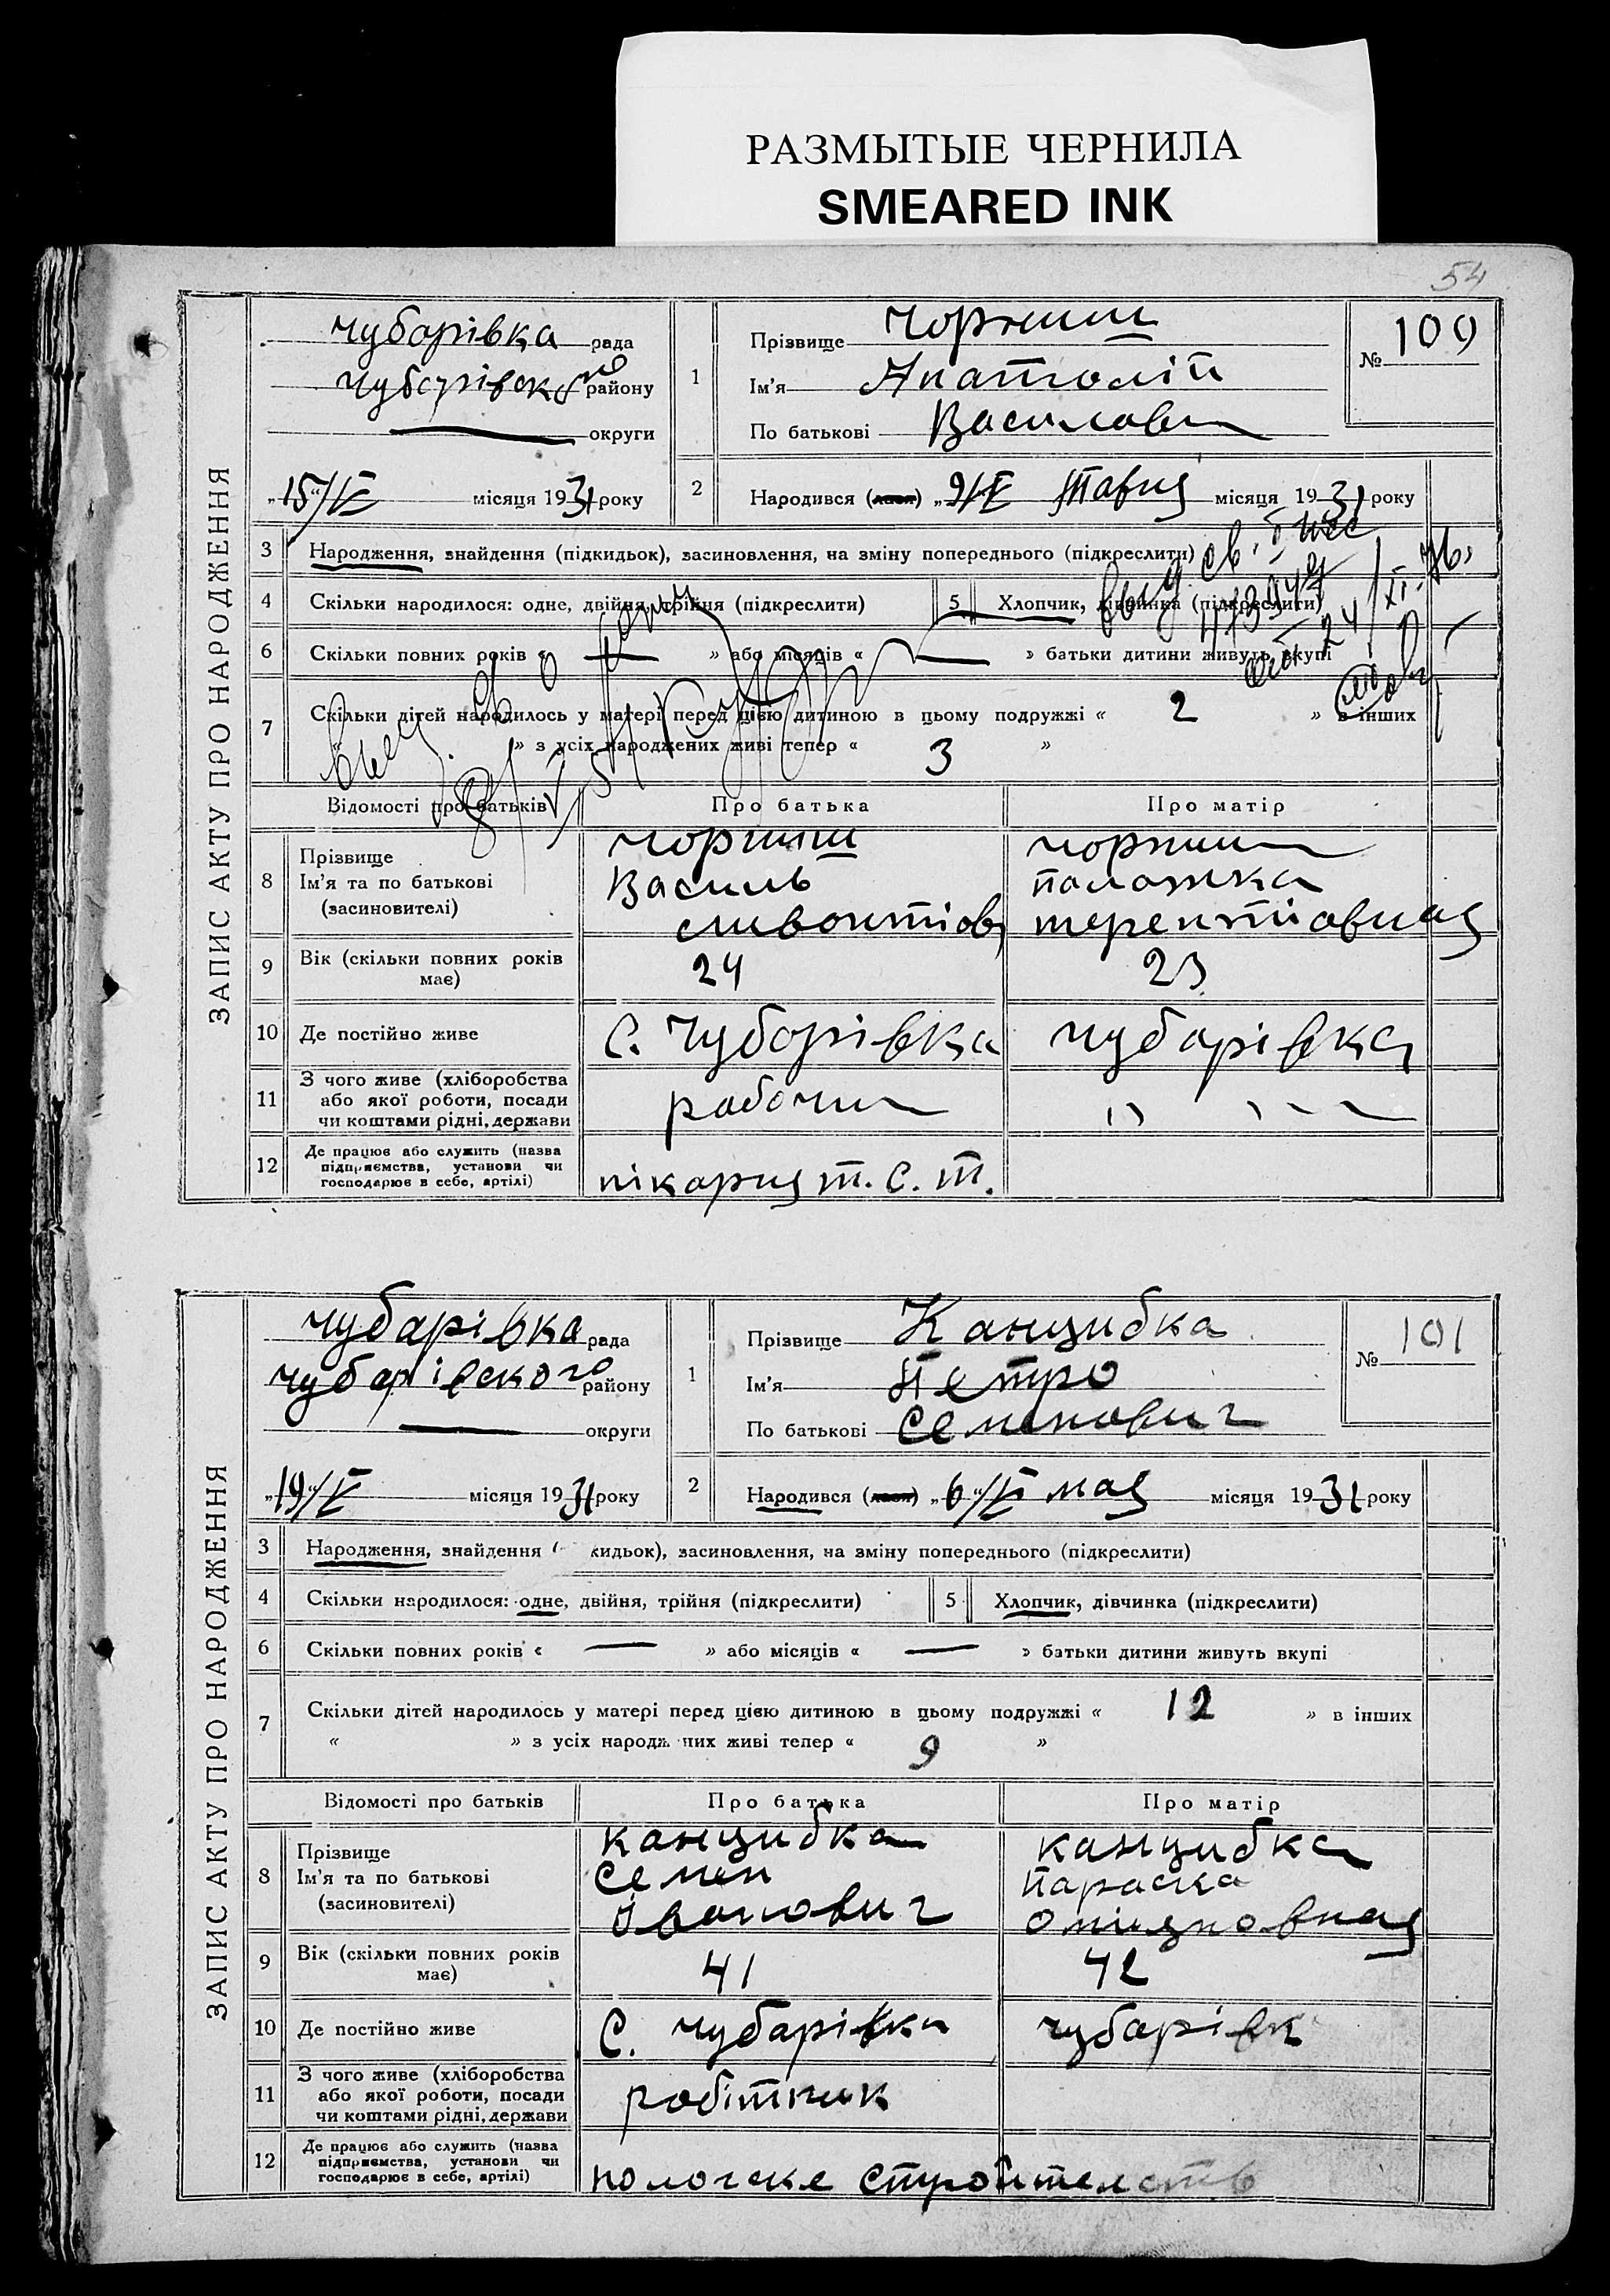 РАЗМЫТЫЕ ЧЕРНИЛА
SMEARED INK
54
ЗАПИС АКТУ ПРО НАРОДЖЕННЯ
Чубарівка рада
Чубарівског района району
округи
„15“/V місяця 1931 року
1
Прізвище Чорниш
Ім'я Анатолій
По батькові Василович
№ 100
2
Народився (лася) „9/V травня місяця 1931 року
3 Народження, знайдення (підкидьок), засиновлення, на зміну попереднього (підкреслити)
4 Скільки народилося: одне, двійня, трійня (підкреслити)
5 Хлопчик, дівчинка (підкреслити)
6 Скільки повних років « — » або місяців « — » батьки дитини живуть вкупі
7 Скільки дітей народилось у матері перед цією дитиною в цьому подружжі « 2 » в інших
« » з усіх народжених живі тепер « 3 »
Відомості про батьків Про батька Про матір
8 Прізвище Ім'я та по батькові (засиновителі)
Чорниш
Василь
Чорниш
Палажка
9 Вік (скільки повних років має) 24 23
10 Де постійно живе С. Чубарівка Чубарівка
11 З чого живе (хліборобства або якої роботи, посади чи коштами рідні, держави рабочий " "
12 Де працює або служить (назва підприємства, установи чи господарює в себе, артілі) пікарня т. с. т.
ЗАПИС АКТУ ПРО НАРОДЖЕННЯ
Чубарівка рада
Чубарівского району
округи
„19“/V місяця 1931 року
1
Прізвище Канцибка
Ім'я Петро
По батькові Семенович
№ 101
2
Народився (лася) „6“/V мая місяця 1931 року
3 Народження, знайдення кидьок), засиновлення, на зміну попереднього (підкреслити)
4 Скільки народилося: одне, двійня, трійня (підкреслити)
5 Хлопчик, дівчинка (підкреслити)
6 Скільки повних років « — » або місяців « — » батьки дитини живуть вкупі
7 Скільки дітей народилось у матері перед цією дитиною в цьому подружжі « 12 » в інших
« » з усіх народжених живі тепер « 9 »
Відомості про батьків Про батька Про матір
8 Прізвище Ім'я та по батькові (засиновителі)
Канцибка
Семен
Іванович
Канцибка
Параска
9 Вік (скільки повних років має) 41 42
10 Де постійно живе С. Чубарівка Чубарівк
11 З чого живе (хліборобства або якої роботи, посади чи коштами рідні, держави робітник
12 Де працює або служить (назва підприємства, установи чи господарює в себе, артілі) пологske стройтелств